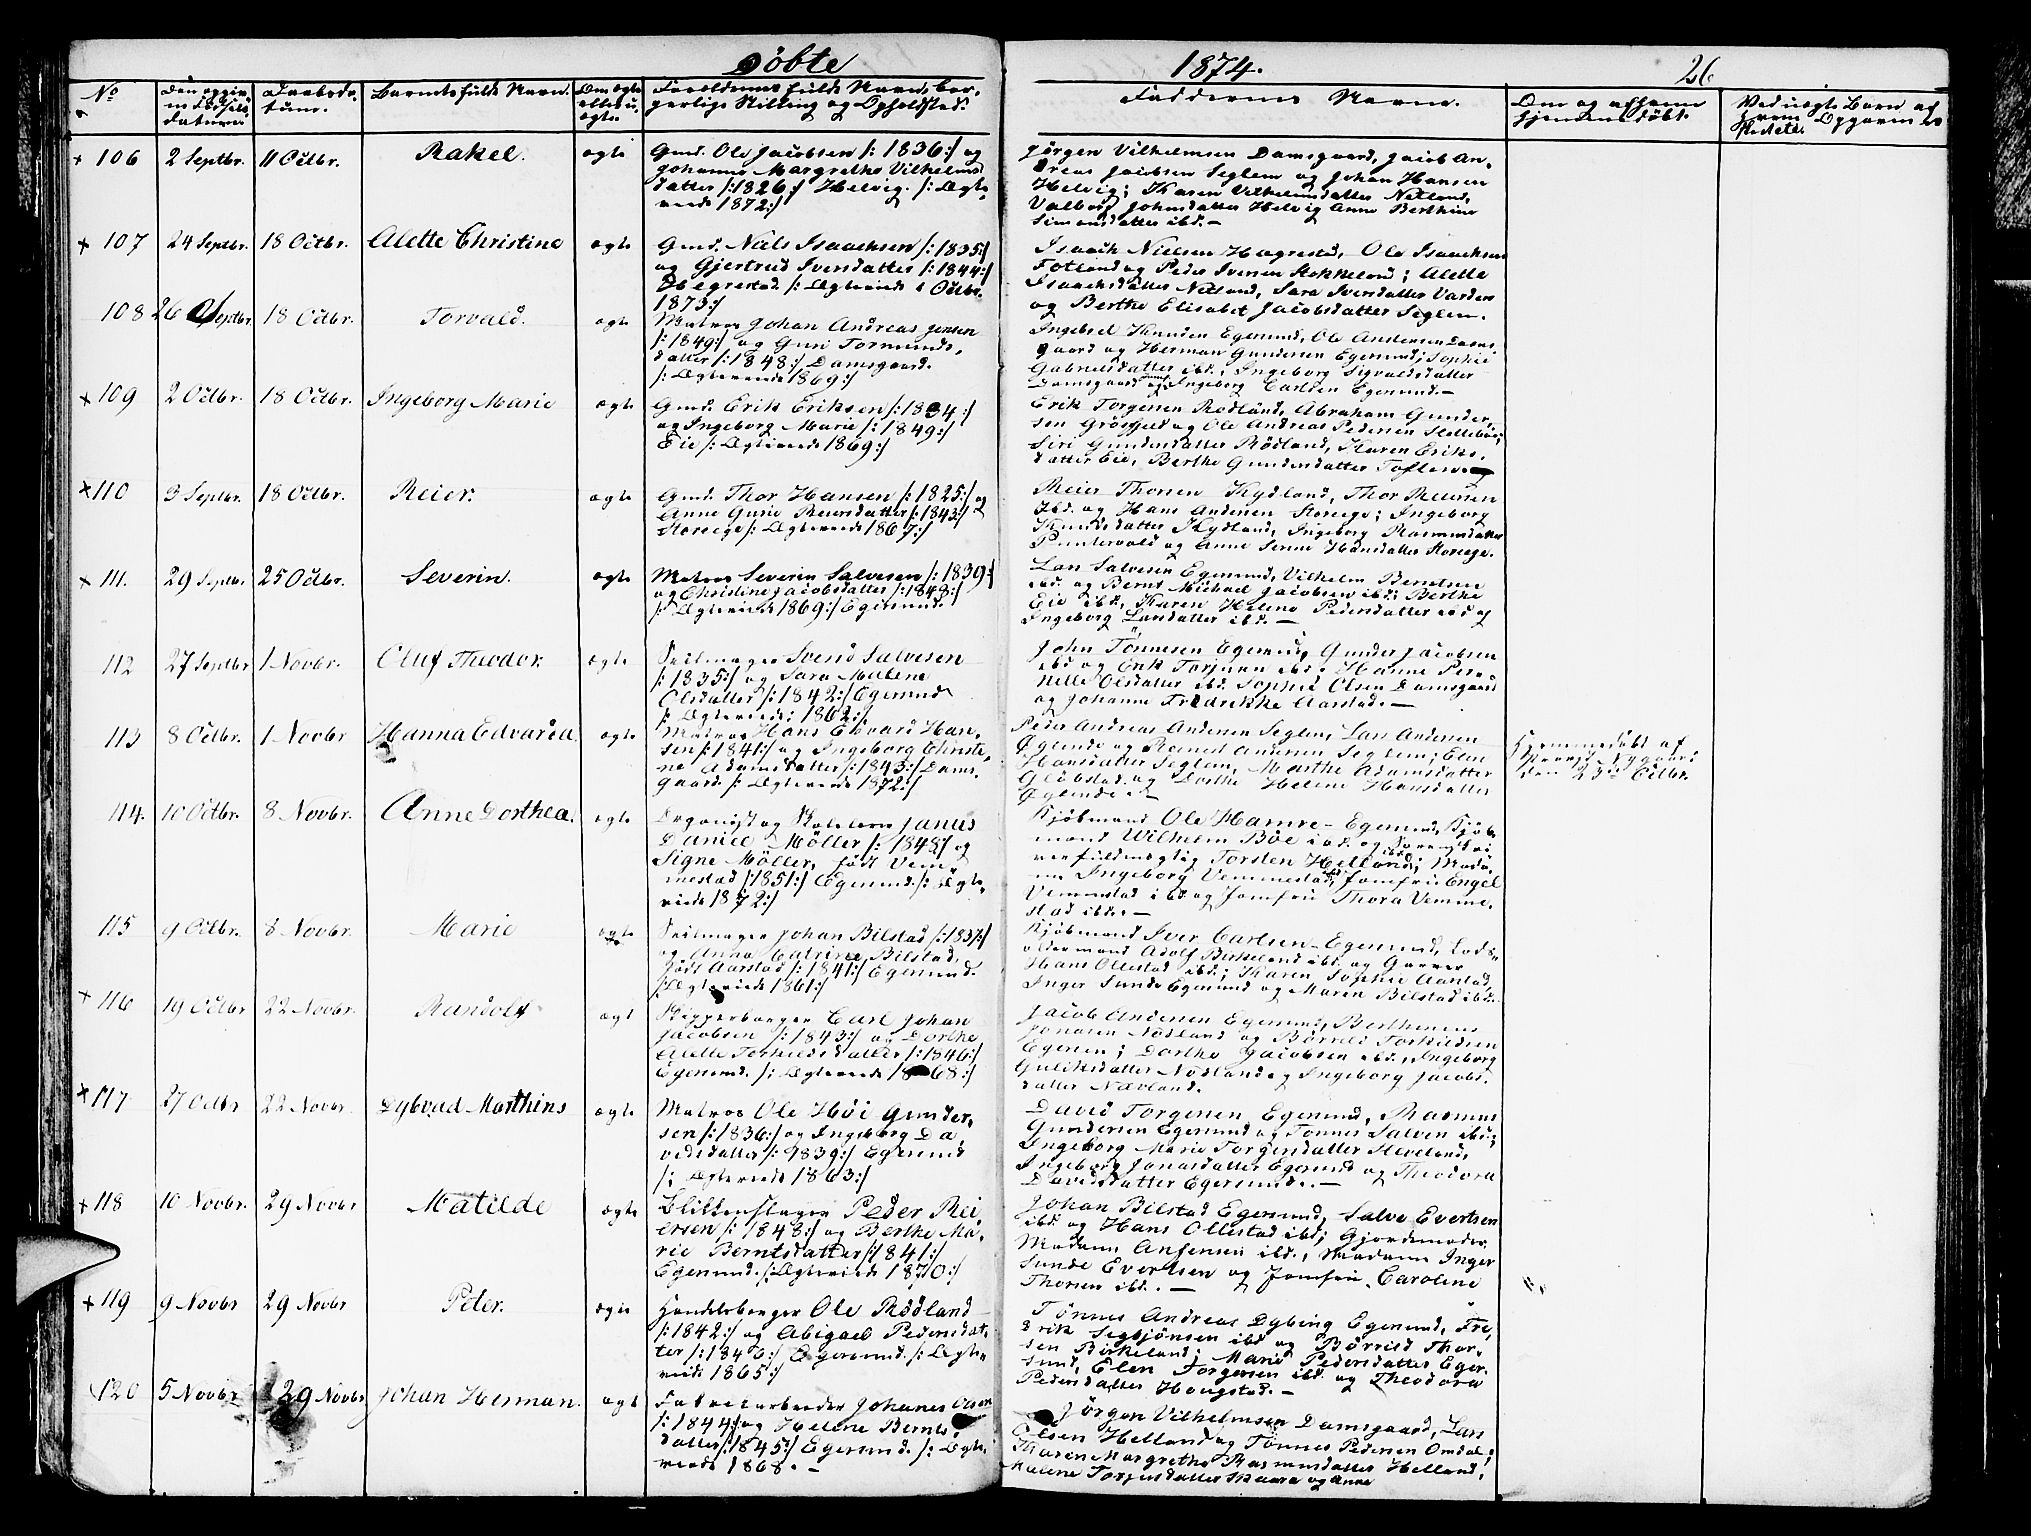 Døbte
1874.
26
No
Den opgivne Fødselsdatum.
Daabsdatum.
Barnets fulde Navn.
Om ægte eller uægte.
Forældrenes fulde Navn, borgerlige Stilling og Opholdsted.
Faddernes Navne.
Om og af hvem hjemmedøbt.
106
2 Septbr.
11 Octbr.
Rakel.
ægte
Gmd. Ole Jacobsen /: 1836 :/ og
Johanne Margrethe Vilhelms
datter /: 1826 :/ Helvig. /: Ægte
viede 1872 :/
Jørgen Vilhelmsen Damsgaard, Jacob An-
dreas Jacobsen Seglem og Johan Hansen
Helvig; Karen Vilhelmsdatter Netland,
Valborg Johnsdatter Helvig Anne Berthine
Simonsdatter ibd. –
107
24 Septbr.
18 Octbr.
Alette Christine
ægte
Gmd. Niels Isaachsen /: 1835 :/
og Gjertrud Iversdatter /: 1844 :/
Hegrestad. /: Ægteviede i Octbr.
1873 :/
Isaach Nielsen Hegrestad, Ole Isaachsen
Fotland og Peder Iversen Stokkeland; Alette
Isaachsdatter Netland, Sara Iversdatter Varden
og Berthe Elisabet Jacobsdatter Seglem.
108
26 Septbr.
18 Octbr.
Torvald.
ægte
Matros Johan Andreas Jensen
/: 1849 :/ og Guri Tormunds-
datter /: 1848 :/ Damsgaard.
/: Ægteviede 1869 :/
Egersund, Ole Andersen Dams
gaard og Herman Gundersen Egersund; Sophie
Gabrielsdatter ibd., Ingeborg Sigvaldsdatter
Damsgaard og Ingeborg Carlsen Egersund. –
109
2 Octbr.
18 Octbr.
Ingeborg Marie
ægte
Gmd. Erik Eriksen /: 1834 :/
og Ingeborg Marie /: 1849 :/
Eie /: Ægteviede 1869 :/
Erik Torgersen Rødland, Abraham Gunder-
sen Grøsfjeld og Ole Andreas Pedersen Slettebøe;
Siri Gundersdatter Rødland, Karen Eriks-
datter Eie, Berthe Gundersdatter
110
3 Septbr.
18 Octbr.
Reier.
ægte
Gmd. Thor Hansen /: 1825 :/ og
Anne Gurie Reiersdatter /: 1843 :/
Storeege /: Ægteviede 1867 :/
Reier Thorsen Kydland, Thor Reiersen
ibd. og Hans Andersen Storeege; Ingeborg
Knudsdatter Kydland, Ingeborg Rasmusdatter
Puntervold og Anne Serine Hansdatter Storeege.
111.
29 Septbr.
25 Octbr.
Severin.
ægte
Matros Severin Salvesen /: 1839 :/
og Christine Jacobsdatter /: 1848 :/
/: Ægteviede 1869 :/ Egersund.
Lars Salvesen Egersund, Vilhelm Berntsen
ibd. og Bernt Michael Jacobsen ibd; Berthe
Eie ibd., Karen Helene Pedersdatter ibd og
Ingeborg Larsdatter ibd. –
112
27 Septbr
1 Novbr.
Oluf Theodor.
ægte
Seilmager Svend Salvesen
/: 1835 :/ og Sara Malene
Olsdatter /: 1842 :/ Egersund
/: Ægteviede: 1862 :/
John Tönnesen Egersund, Gunder Jacobsen
ibd og Erik Torjusen ibd; Hanne Per-
nelle Olsdatter ibd. Sophie Olsen Damsgaard
og Johanne Fredrikke Aarstad. –
113
8 Octbr.
1 Novbr
Hanna Edvarda
ægte
Matros Hans Edvard Han-
sen /: 1841 :/ og Ingeborg Christe-
ne Adamsdatter /: 1843 :/ Dams-
gaard. /: Ægteviede 1872 :/
Peder Andreas Andersen Seglem, Lars Andersen
Øglende og Reinert Andersen Seglem; Elen
Hansdatter Seglem, Marthe Adamsdatter
Gløbstad og Dorthe Helene Hansdatter
Øglende. –
Hjemmedøbt af
Nygaard
den 23de Octbr.
114.
10 Octbr.
8 Novbr.
Anne Dorthea.
ægte
Organist og Skolelærer Janus
Daniel Möller /: 1848 :/ og
Signe Möller, født Vem-
mestad /: 1851 :/ Egersund. /: Ægte-
viede 1872 :/
Kjøbmand Ole Hamre Egersund, Kjøb
mand Wilhelm Böe ibd. og Sorenskri
verfuldmægtig Torsten Helland ibd; Mada
me Ingeborg Vemmestad ibd, Jomfru Engel
Vemmestad ibd. og Jomfru Thora Vemme-
stad ibd. –
115
9 Octbr.
8 Novbr.
Marie
ægte
Seilmager Johan Bilstad /: 1837 :/
og Anna Catrine Bilstad,
født Aarstad /: 1841 :/ Egersund.
/: Ægteviede 1861 :/
Kjøbmand Iver Carlsen Egersund, Lods-
oldermand Adolf Birkeland ibd. og Garver
Hans Ollestad ibd.; Karen Sophie Aarstad,
Inger Sunde Egersund og Maren Bilstad ibd.
116
19 Octbr
22 Novbr.
Randolf
ægte
Skipperborger Carl Johan
Jacobsen /: 1843 :/ og Dorthe
Alette Torkildsdatter /: 1846 :/
Egersund. /: Ægteviede 1868 :/
Jacob Andersen Egersund, Berthinius
Jonasen Nødland og Børreld Torkildsen
Egersun; Dorthe Jacobsen ibd., Ingeborg
Guliksdatter Nødland og Ingeborg Jacobs-
datter Nævland.
117
27 Octbr
22 Novbr.
Dybvad Marthins
ægte
Matros Ole Høi Gunder-
sen /: 1836 :/ og Ingeborg Da-
vidsdatter /: 1839 :/ Egersund
/: Ægteviede 1863 :/
David Torgersen Egersund, Rasmus
Gundersen Egersund og Tönnes Salvesen ibd;
Ingeborg Marie Torgersdatter Sleveland,
Ingeborg Jonasdatter Egersund og Theodora
Davidsdatter Egersund. –
118
10 Novbr.
29 Novbr
Matilde
ægte
Blikkenslager Peder Rei-
ersen /: 1848 :/ og Berthe Ma-
rie Berntsdatter /: 1841 :/
Egersund. /: Ægteviede 1870 :/
Johan Bilstad Egersund, Salve Evertsen
ibd og Hans Ollestad ibd; Gjordemoder
Madam Anfensen ibd., Madame Inger
Sunde Evertsen og Jomfru Caroline
Thorsen ibd. –
119
9 Novbr
29 Novbr
Peter.
ægte
Handelsborger Ole Rødland
/: 1842 :/ og Abigael Pedersdat-
ter /: 1846 :/ Egersund. /: Ægte-
viede 1865 :/
Tönnes Andreas Dybing Egersund, Fre-
drik Segbjörnsen ibd og Börrild Thor-
sen Birkeland; Marie Pedersdatter Eger-
sund, Elen Torgersen ibd. og Theodora
Pedersdatter Hougstad. –
120
5 Novbr
29 Novbr
Johan Herman.
ægte
Fabrikarbeider Johanes Olsen
/: 1844 :/ og Helene Bernts-
datter /: 1845 :/ Egersund. /: Ægte-
viede 1868. –
Jørgen Vilhelmsen Damsgaard, Lars
Olsen Helland og Tönnes Pedersen Omdal;
Maren Margrethe Rasmusdatter Helland,
Malene Torgersdatter Skaara og Anne